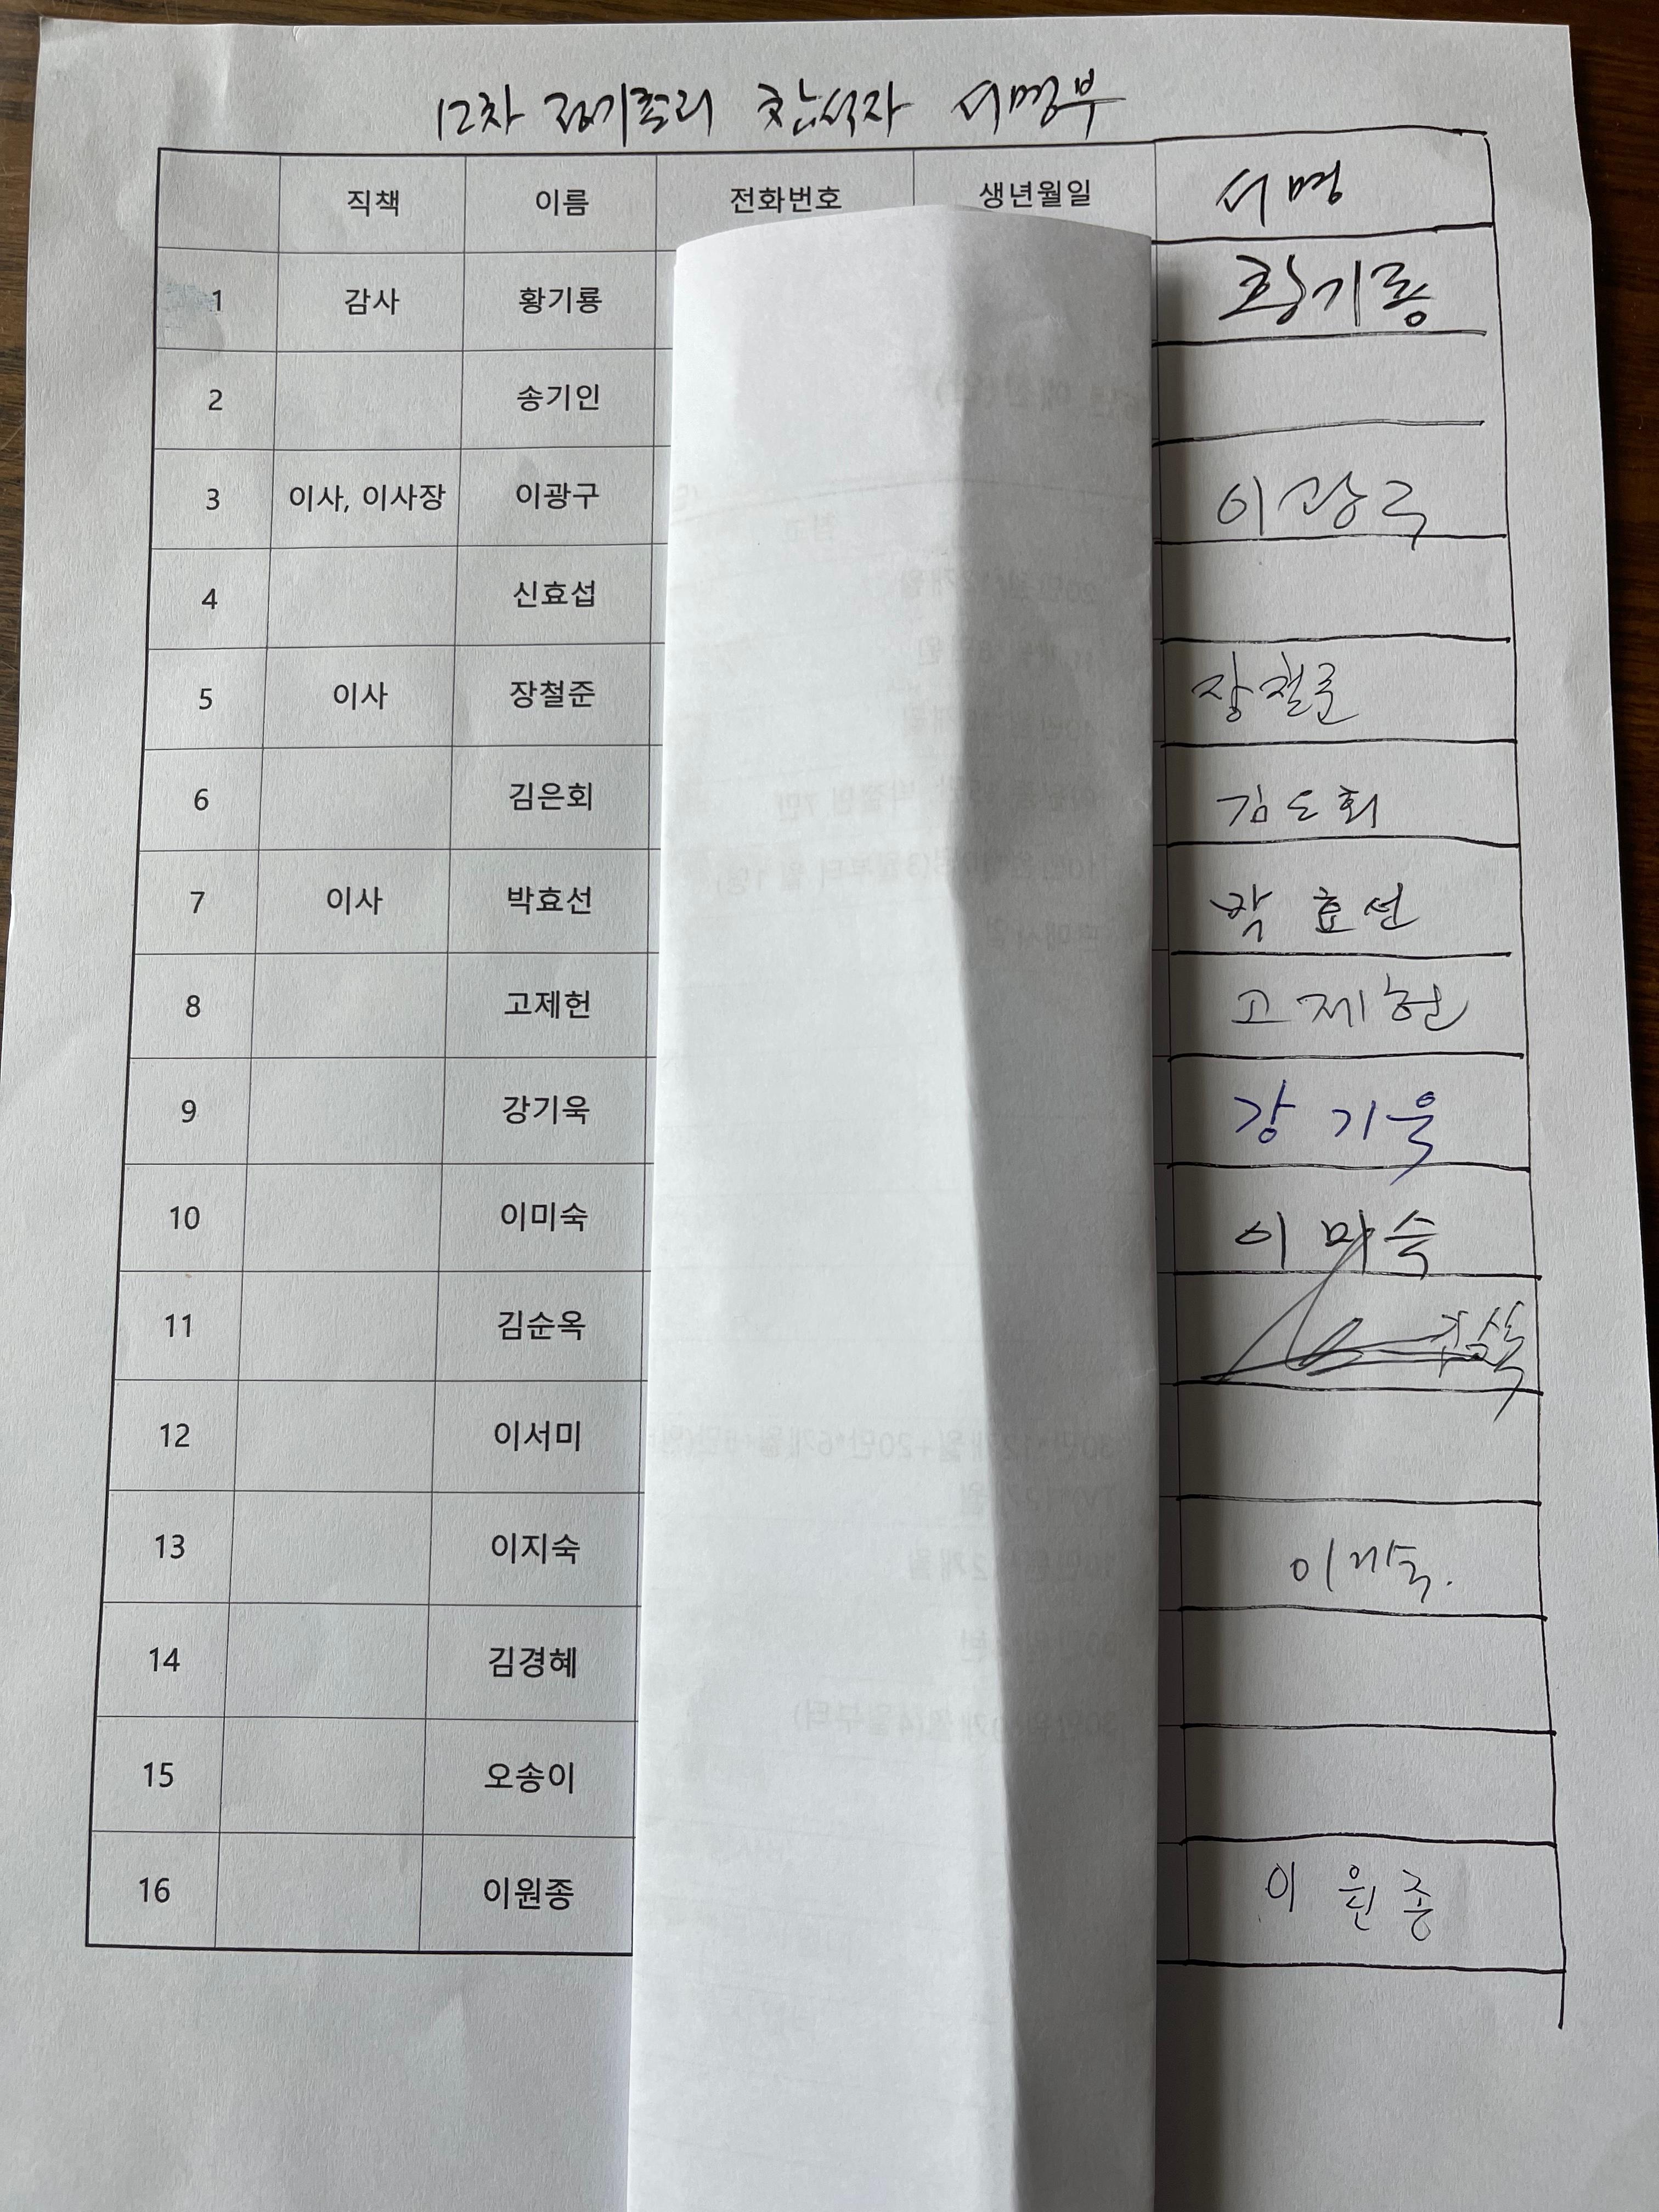 12차 정기총회 참석자 서명부
직책 이름 전화번호 생년월일 서명
1 감사 황기룡 황기룡
2 송기인
3 이사, 이사장 이광구 이광구
4 신효섭
5 이사 장철준 장철준
6 김은회 김은회
7 이사 박효선 박효선
8 고제헌 고제헌
9 강기욱 강기욱
10 이미숙 이미숙
11 김순옥
12 이서미
13 이지숙 이지숙.
14 김경혜
15 오송이
16 이원종 이원종